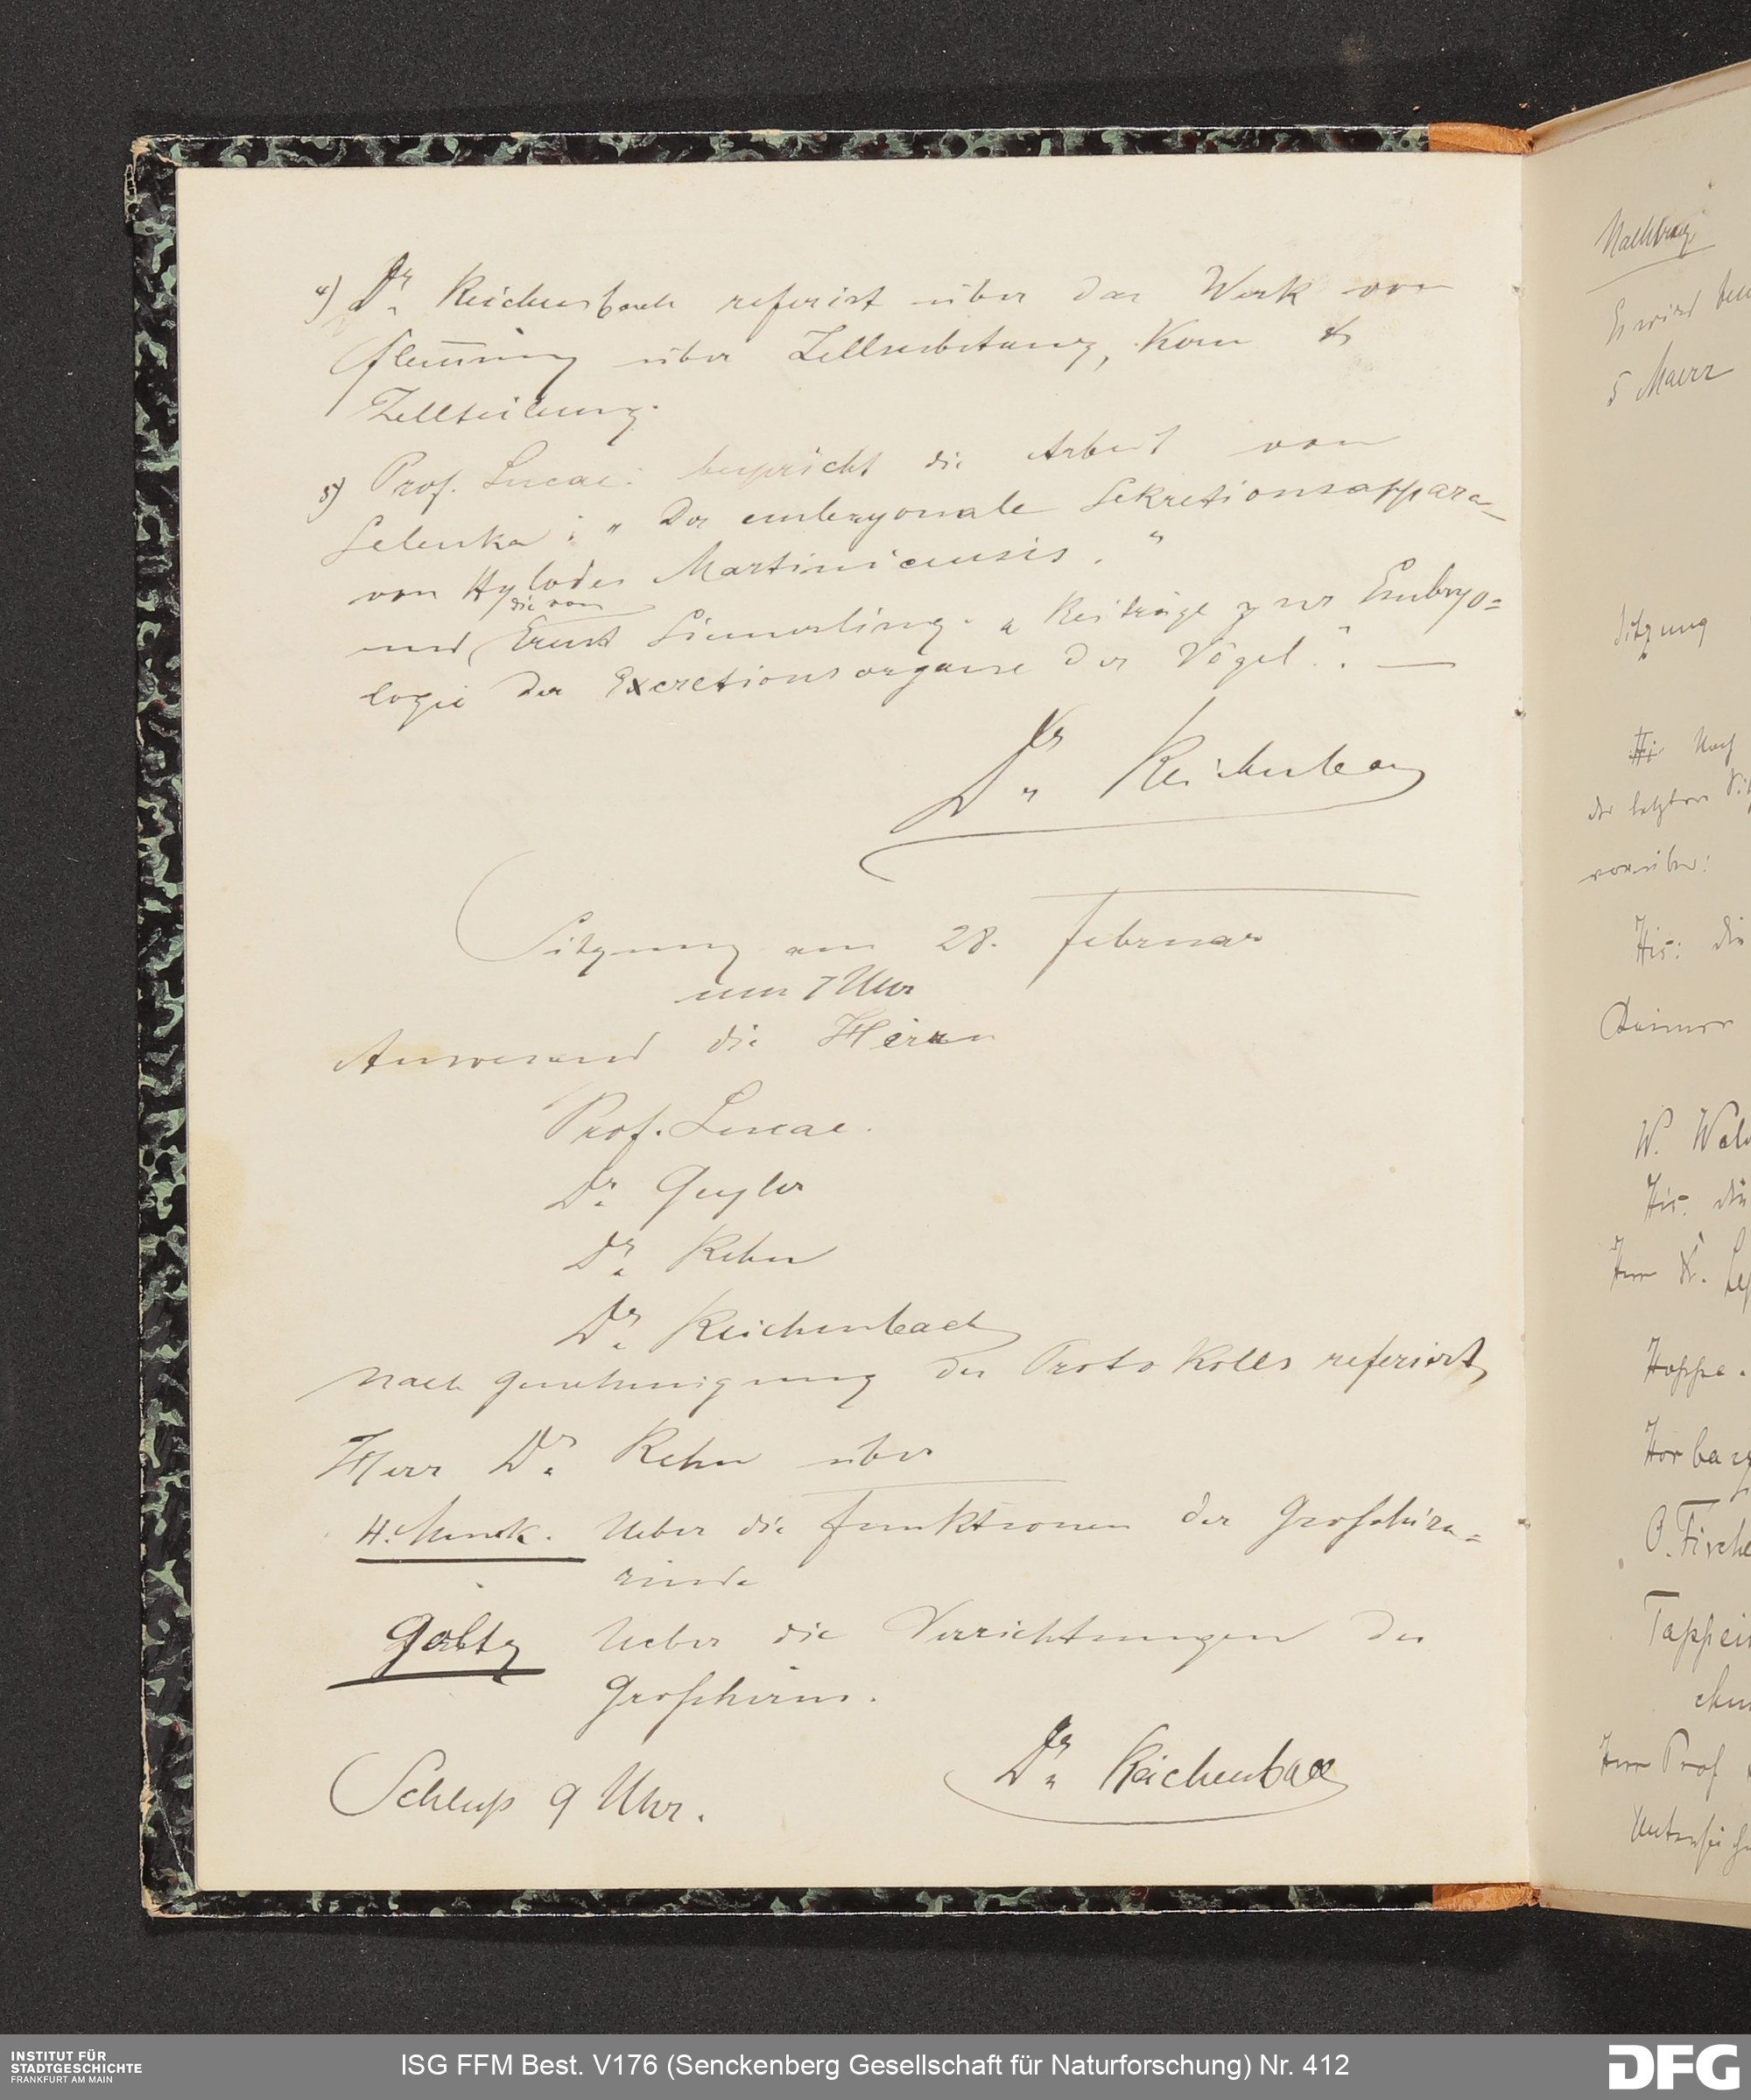 4) Dr. Reichenbach referirt über das Werk von
Flem̅ing über Zellsubstanz, Kern &
Zellteilung.
5) Prof. Lucae: bespricht die Arbeit von
Selenka: „Der embryonale Sekretionsappara-
von Hylodes Martinicensis."
die von
und Ernst Siemerling. „Beiträge zur Embryo=
logie der Excretionsorgane der Vögel." —
Dr. Reichenbach
Sitzung am 28. Februar
um 7 Uhr
Anwesend die Herrn
Prof. Lucae.
Dr. Geyler
Dr. Rehn
Dr. Reichenbach
Nach Genehmigung des Protokolls referiert
Herr Dr. Rehn über
H. Munk. Ueber die Funktionen der Großhirn=
rinde
Goltz Ueber die Verrichtungen des
Großhirns.
Dr. Reichenbach
Schluß 9 Uhr.
Nachtrag
Es wird
5 März
Sitzung
Nach
der letzten
vorüber:
His: die
W.
His. die
Herr Dr.
Hoppe.
O. Fische
Tappein
Herr Prof
INSTITUT FÜR
STADTGESCHICHTE
FRANKFURT AM MAIN
ISG FFM Best. V176 (Senckenberg Gesellschaft für Naturforschung) Nr. 412
DFG